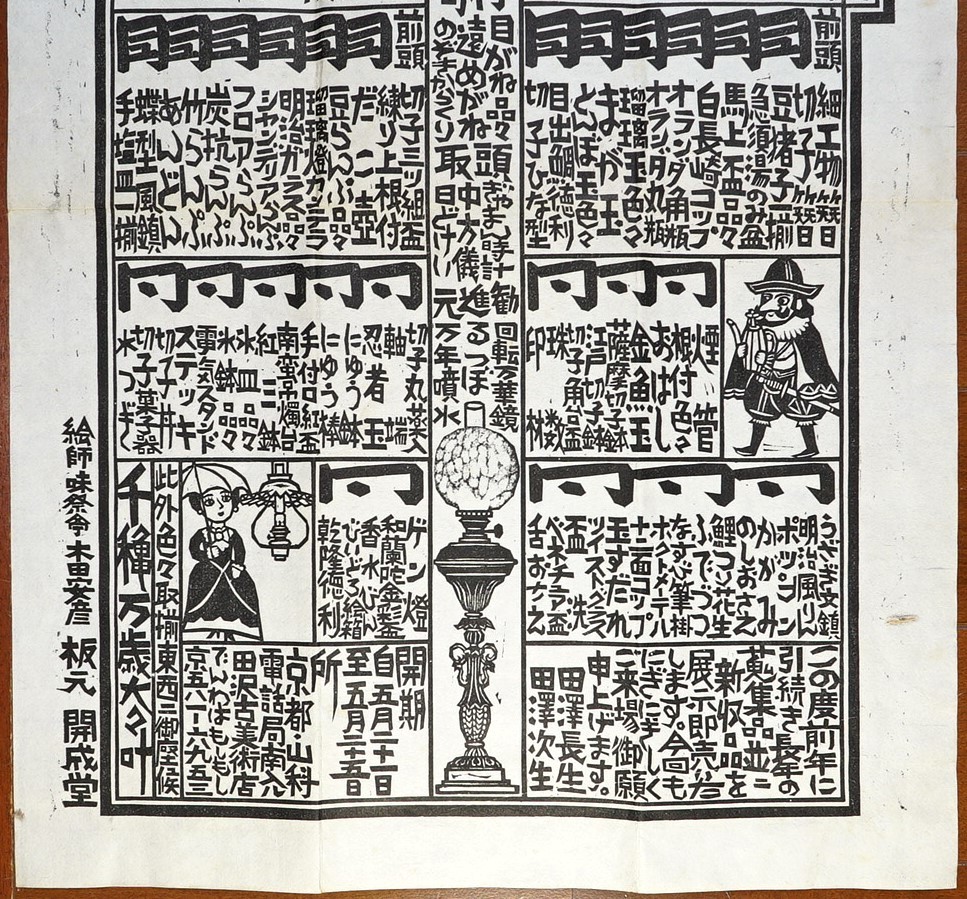 前頭
細工物簪日
切子簪日
豆猪子二揃
急須湯のみ盆
馬上盃品々
白長崎コップ
オランダ角瓶
オランダ丸瓶
瑠璃玉色々
まが玉
とんぼ玉色々
目出鯛徳利
切子ひな型
同
煙管
根付色々
おはじし
金魚玉
薩摩切子鉢
江戸切子鉢
切子角盃
珠数
印材
同
うさぎ文鎮
明治風りん
ポッコンコン
かがみ
のしおさえ
鯉コン花生
ふでづつ
なすび筆掛
ホクトメーハ
十二面コップ
玉すだれ
ツイストグラス
盃洗
ベネチア盃
舌おさえ
この度前年に
引続き長崎の
蒐集品並に
新収品を
展示即売会
します。今回も
にぎにぎしく
ご来場御願
申上げます。
田澤長生
田澤次生
行
目がね品々
遠めがね
のぞきからくり
頭
ぎやまん時計
取
中方儀
日どけい
勧進元
回転万華鏡
るつぼ
万年噴水
前頭
切子三ツ組盃
練り上根付
だニ壺
豆らんぷ品々
瑠璃燈カンテラ
明治ガラス品々
シャンデリアらんぷ
フロアらんぷ
炭坑らんぷ
竹らんぷ
あんどん
蝶型風鎮
手塩皿一揃
同
切子丸蓋
軸端
忍者玉
にゅう鉢
にゅう棒
手付口紅盃
南蛮吊燭台
紅三鉢
氷皿品々
氷鉢品々
電気スタンド
ステッキ
切子丼
切子菓子器
水つぎ
同
ゲン燈
和蘭陀金彩盃
香水びん
びいどろ絵箱
乾隆徳利
開期
自五月二十一日
至五月二十五日
所
京都・山科
電話局南入
田沢古美術店
でんわはもしもし
京五八一一六九五三
此外色々取揃東西二御座候
千穐万歳大々叶
絵師味祭堂木田安彦 板元 開成堂